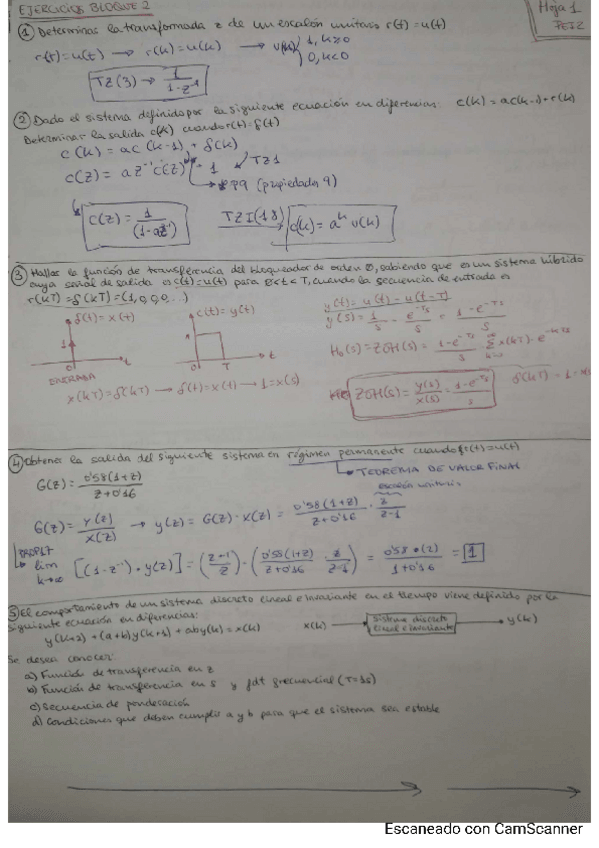 EJERCICIOS BLOQUE 2
Hoja 1
① Determinar la transformada z de un escalón unitario r(t)=u(t)
r(t)=u(t) → r(k)=u(k) → u(k) { 1, k≥0
0, k<0
TZ(3) → 1/(1-z⁻¹)
② Dado el sistema definido por la siguiente ecuación en diferencias: c(k)=ac(k-1)+r(k)
Determinar la salida c(k) cuando r(t)=δ(t)
c(k)=ac(k-1)+δ(k)
c(z)=az⁻¹c(z)+1 TZ1
(propiedades 9)
c(z)=1/(1-az⁻¹) TZI(18) c(k)=aᵏ u(k)
③ Hallar la función de transferencia del bloqueador de orden 0, sabiendo que es un sistema híbrido
cuya señal de salida es c(t)=u(t) para 0<t<T, cuando la secuencia de entrada es
r(kT)=δ(kT)=(1,0,0,...)
δ(t)=x(t) c(t)=y(t) y(t)=u(t)-u(t-T)
y(s)=1/s - e^-Ts/s = 1-e^-Ts/s
H₀(s)=ZOH(s)= 1-e^-Ts/s · Σ x(kT)·e^-kTs
0 t 0 T t
ENTRADA
x(kT)=δ(kT) → δ(t)=x(t) → 1=x(s)
ZOH(s)= y(s)/x(s) = 1-e^-Ts/s
④ Obtener la salida del siguiente sistema en régimen permanente cuando r(t)=u(t)
TEOREMA DE VALOR FINAL
G(z)= 0'58(1+z)/z+0'16
escalón unitario
G(z)= y(z)/x(z) → y(z)=G(z)·x(z)= 0'58(1+z)/z+0'16 · z/z-1
lim k→∞ [(1-z⁻¹)·y(z)] = (z-1/z)·(0'58(1+z)/z+0'16 · z/z-1) = 0'58·(2)/1+0'16 = 1
⑤ El comportamiento de un sistema discreto lineal e invariante en el tiempo viene definido por la
siguiente ecuación en diferencias:
y(k+2)+(a+b)y(k+1)+aby(k)=x(k) x(k) → Sistema discreto lineal e invariante → y(k)
Se desea conocer:
a) Función de transferencia en z
b) Función de transferencia en s y fdt frecuencial (T=1s)
c) Secuencia de ponderación
d) Condiciones que deben cumplir a y b para que el sistema sea estable
Escaneado con CamScanner